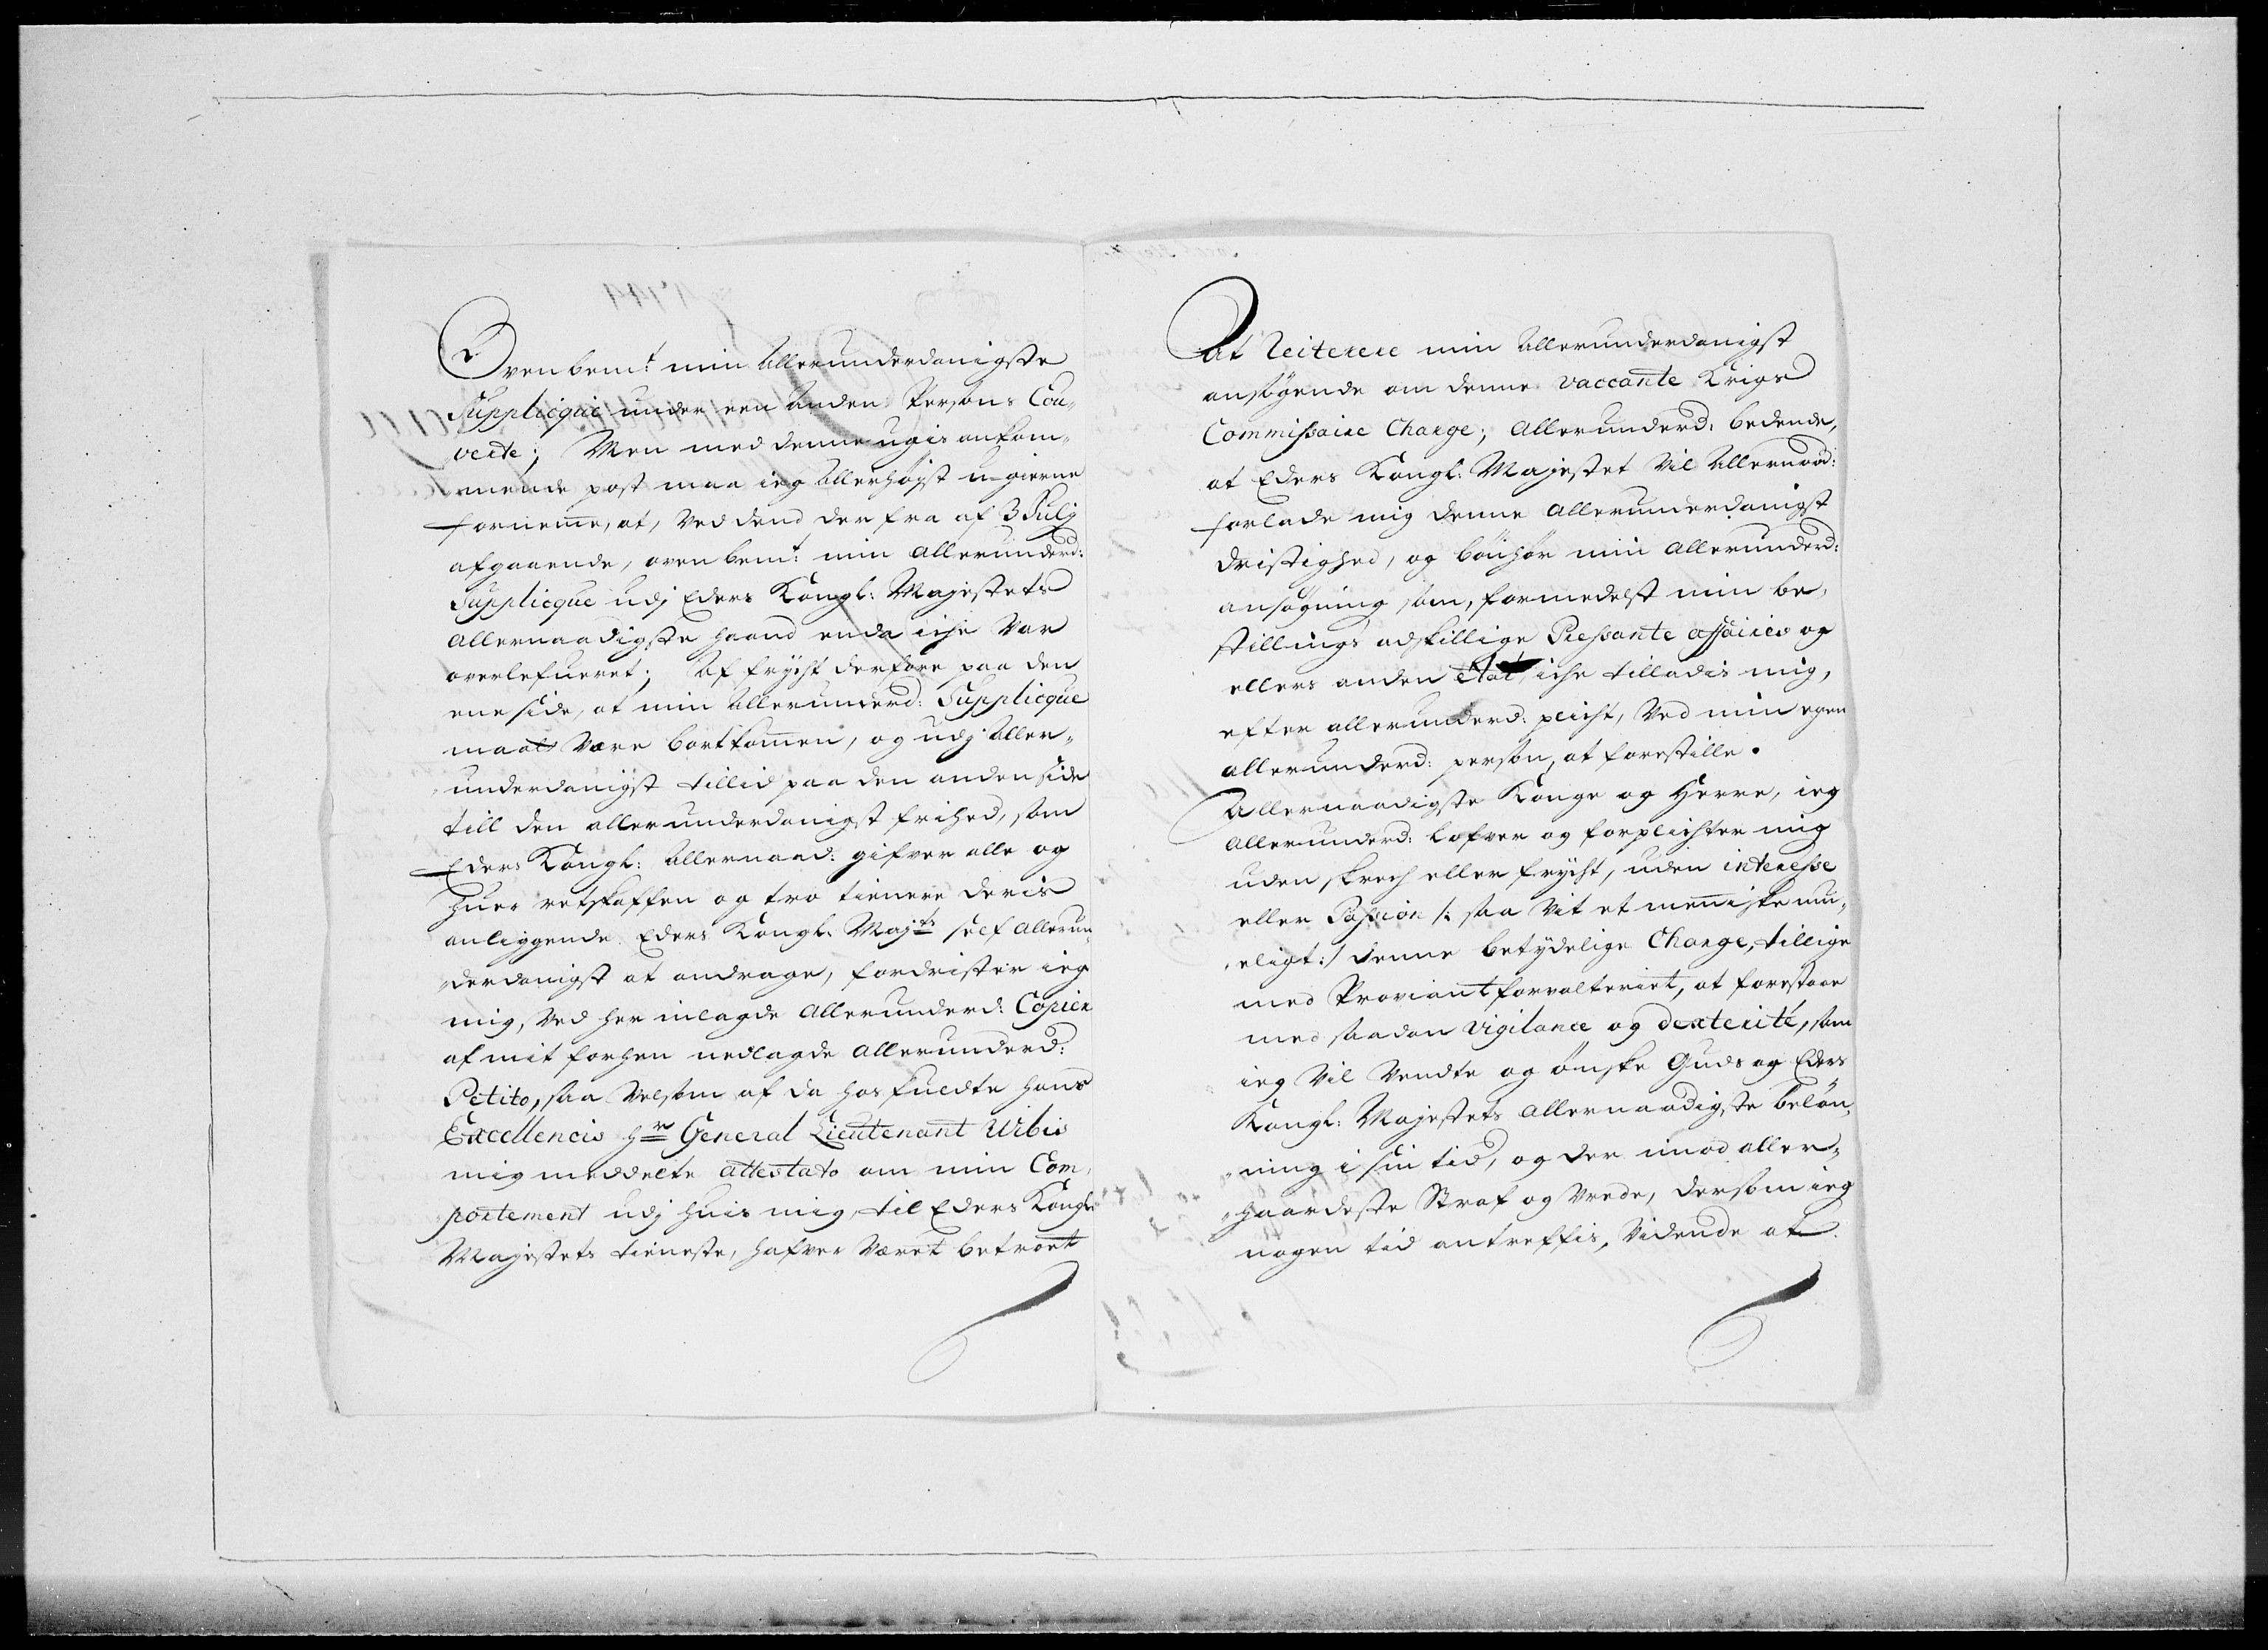 Ovenbem:t min Allerunderdanigste
Supplicque under een anden Persons Cou-
verte; Men med denne ugis ankom-
mende post maa ieg Allerhøyst ugierne
fornemme, at, ved dend der fra af 3 Julij
afgaaende, ovenbem:t min allerunderd:
Supplicque udj Eders Kongl: Majestets
allernaadigste haand enda iche Var
overlefueret; Af frycht derfore paa den
ene side, at min Allerunderd: Supplicque
maate Være bortkommen, og udj Aller-
underdanigst tillid paa den anden side
till den allerunderdanigst frihed, som
Eders Kongl: Allernaad: gifver alle og
huer retskaffen og tro tienere deris
anliggende Eders Kongl: Maj:ts self allerun-
derdanigst at andrage, fordrister ieg
mig, ved her inlagde Allerunderd: Copier
af mit forhen nedlagde allerunderd:
Petito, saa Velsom af da hosfuedte hans
Excellencis H:r General Lieutenant Wibis
mig meddelte attestato om min Com-
portement udj huis mig, til Eders Kongl:
Majestets tieneste, hafver Været betroet
At reiterere min allerunderdanigst
ansøgende om denne vaccante Krigs
Commissaire Charge; Allerunderd: bedende,
at Eders Kongl: Majestet Vil Allernaad:
forlade mig denne allerunderdanigst
dristighed, og bønhør min allerunderd:
ansøgning som, formedelst min be-
stillings adskillige Pressante affaires og
ellers anden Etat, iche tilladis mig,
efter allerunderd: plicht, Ved min egen
allerunderd: person, at forestille.
Allernaadigste Konge og Herre, ieg
allerunderd: lofver og forplichter mig
uden skrech eller frycht, uden interesse
eller Passion /: saa Vit et menniske mu-
eligt :/ denne betydelige Charge, tillige
med Proviantforvalteriet, at forestaae
med saadan vigilance og dexterité, som
ieg Vil Vendte og ønske Guds og Eders
Kongl: Majestets allernaadigste beløn-
ning i sin tid, og der imod aller-
haardeste Straf og Vrede, dersom ieg
nogen tid antreffis, Vidende at